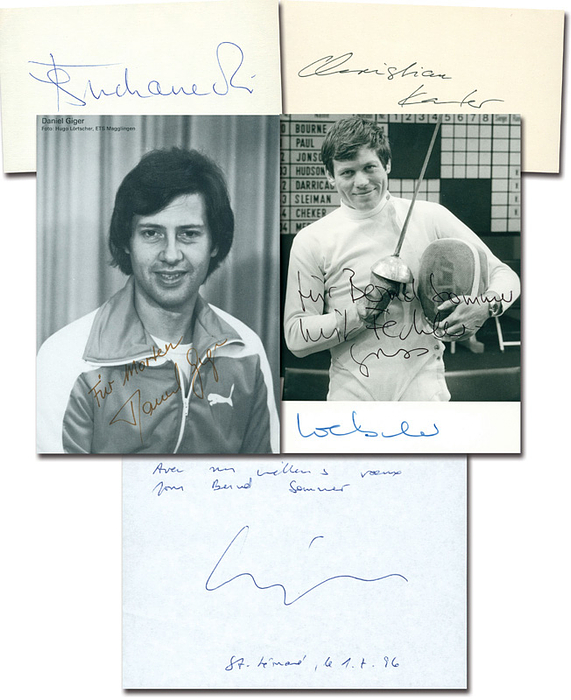 Suchanecki
Christian
Kauter
Daniel Giger
Foto: Hugo Lörtscher, ETS Magglingen
Für Morten
Daniel Giger
BOURNE
PAUL
JONSO
HUDSON
DARRICA
SLEIMAN
CHEKER
1 2 3 4 5 6 7 8
für Bernd Sommer
mit Fechter
gruss
Avec mes meilleurs voeux
pour Bernd Sommer
St. Léonard, le 1.7.96